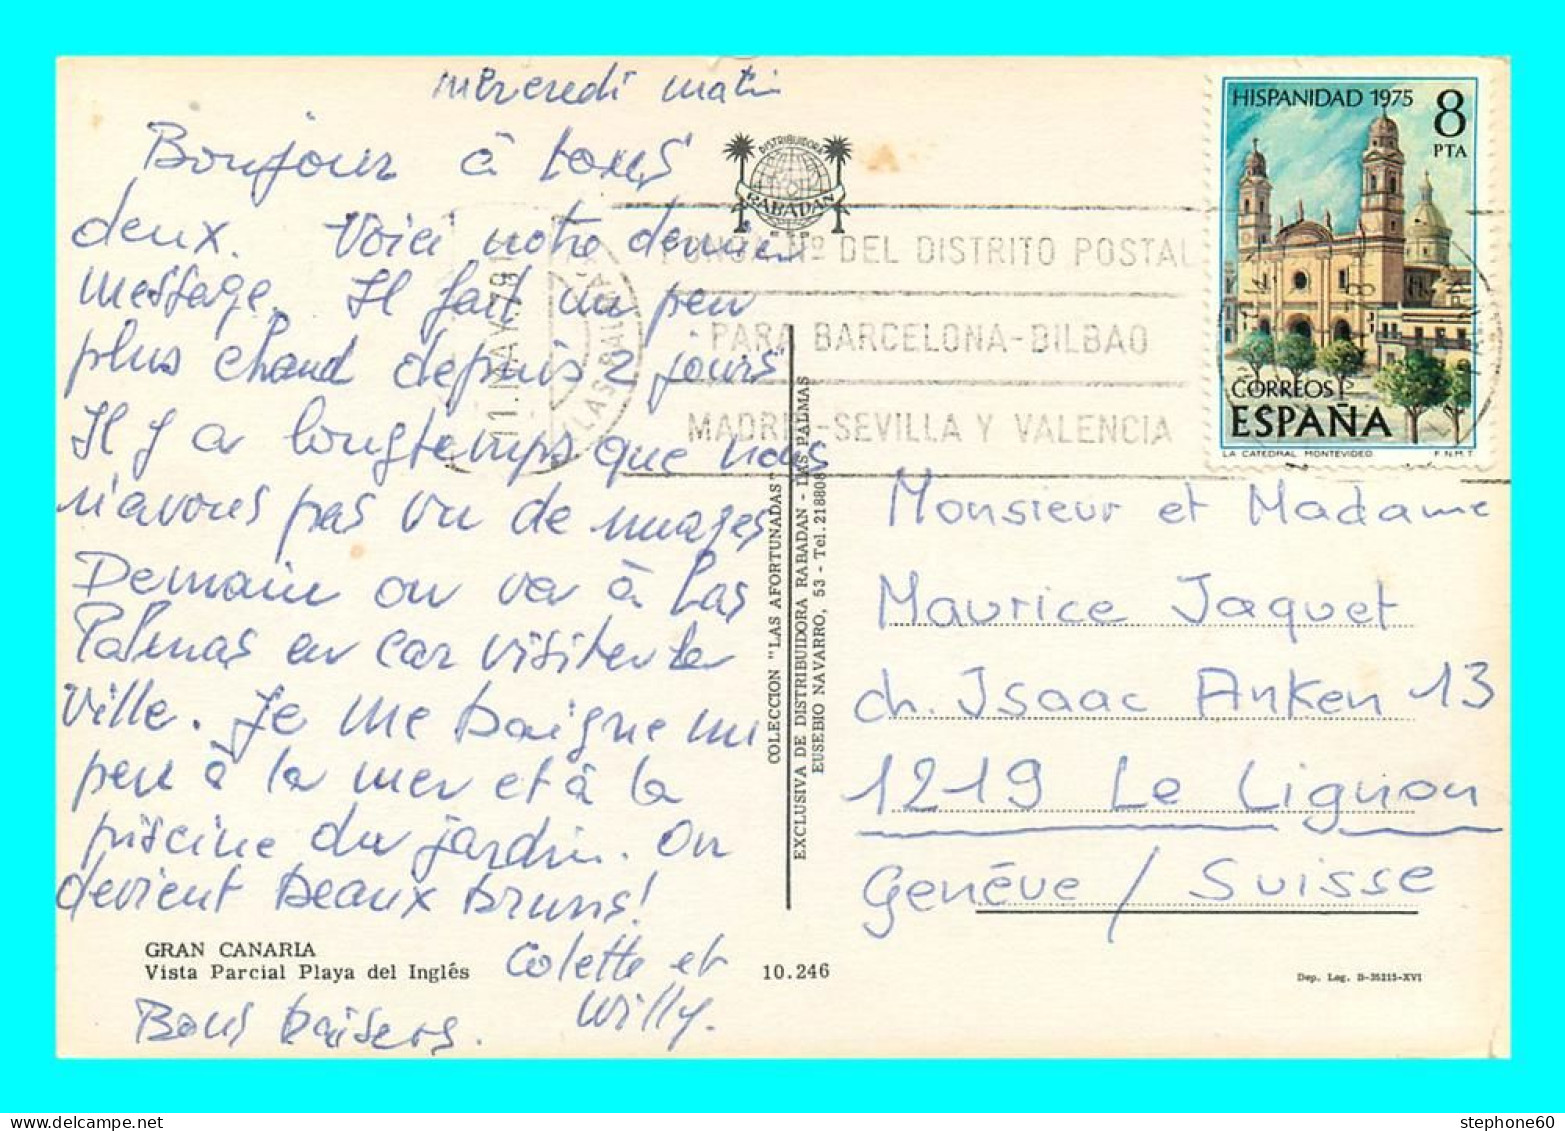 mercredi matin
Bonjour à tous
deux. Voici notre dernier
message. Il fait un peu
plus chaud depuis 2 jours
Il y a longtemps que nous
n'avons pas vu de nuages
Demain on va à Las
Palmas en car visiter la
ville. Je me baigne un
peu à la mer et à la
piscine du jardin. On
devient beaux bruns!
Colette et
Willy.
Bons baisers.
GRAN CANARIA
Vista Parcial Playa del Inglés
10.246
Dep. Leg. B-35215-XVI
DISTRIBUIDORA
RABADAN
COLECCION "LAS AFORTUNADAS"
EXCLUSIVA DE DISTRIBUIDORA RABADAN - LAS PALMAS
EUSEBIO NAVARRO, 53 - Tel. 218808
Nº DEL DISTRITO POSTAL
PARA BARCELONA-BILBAO
MADRID-SEVILLA Y VALENCIA
11. MAY. 79
HISPANIDAD 1975
8
PTA
CORREOS
ESPAÑA
LA CATEDRAL MONTEVIDEO F.N.M.T
Monsieur et Madame
Maurice Jaquet
ch. Isaac Anken 13
1219 Le Lignon
Genève / Suisse
stephone60